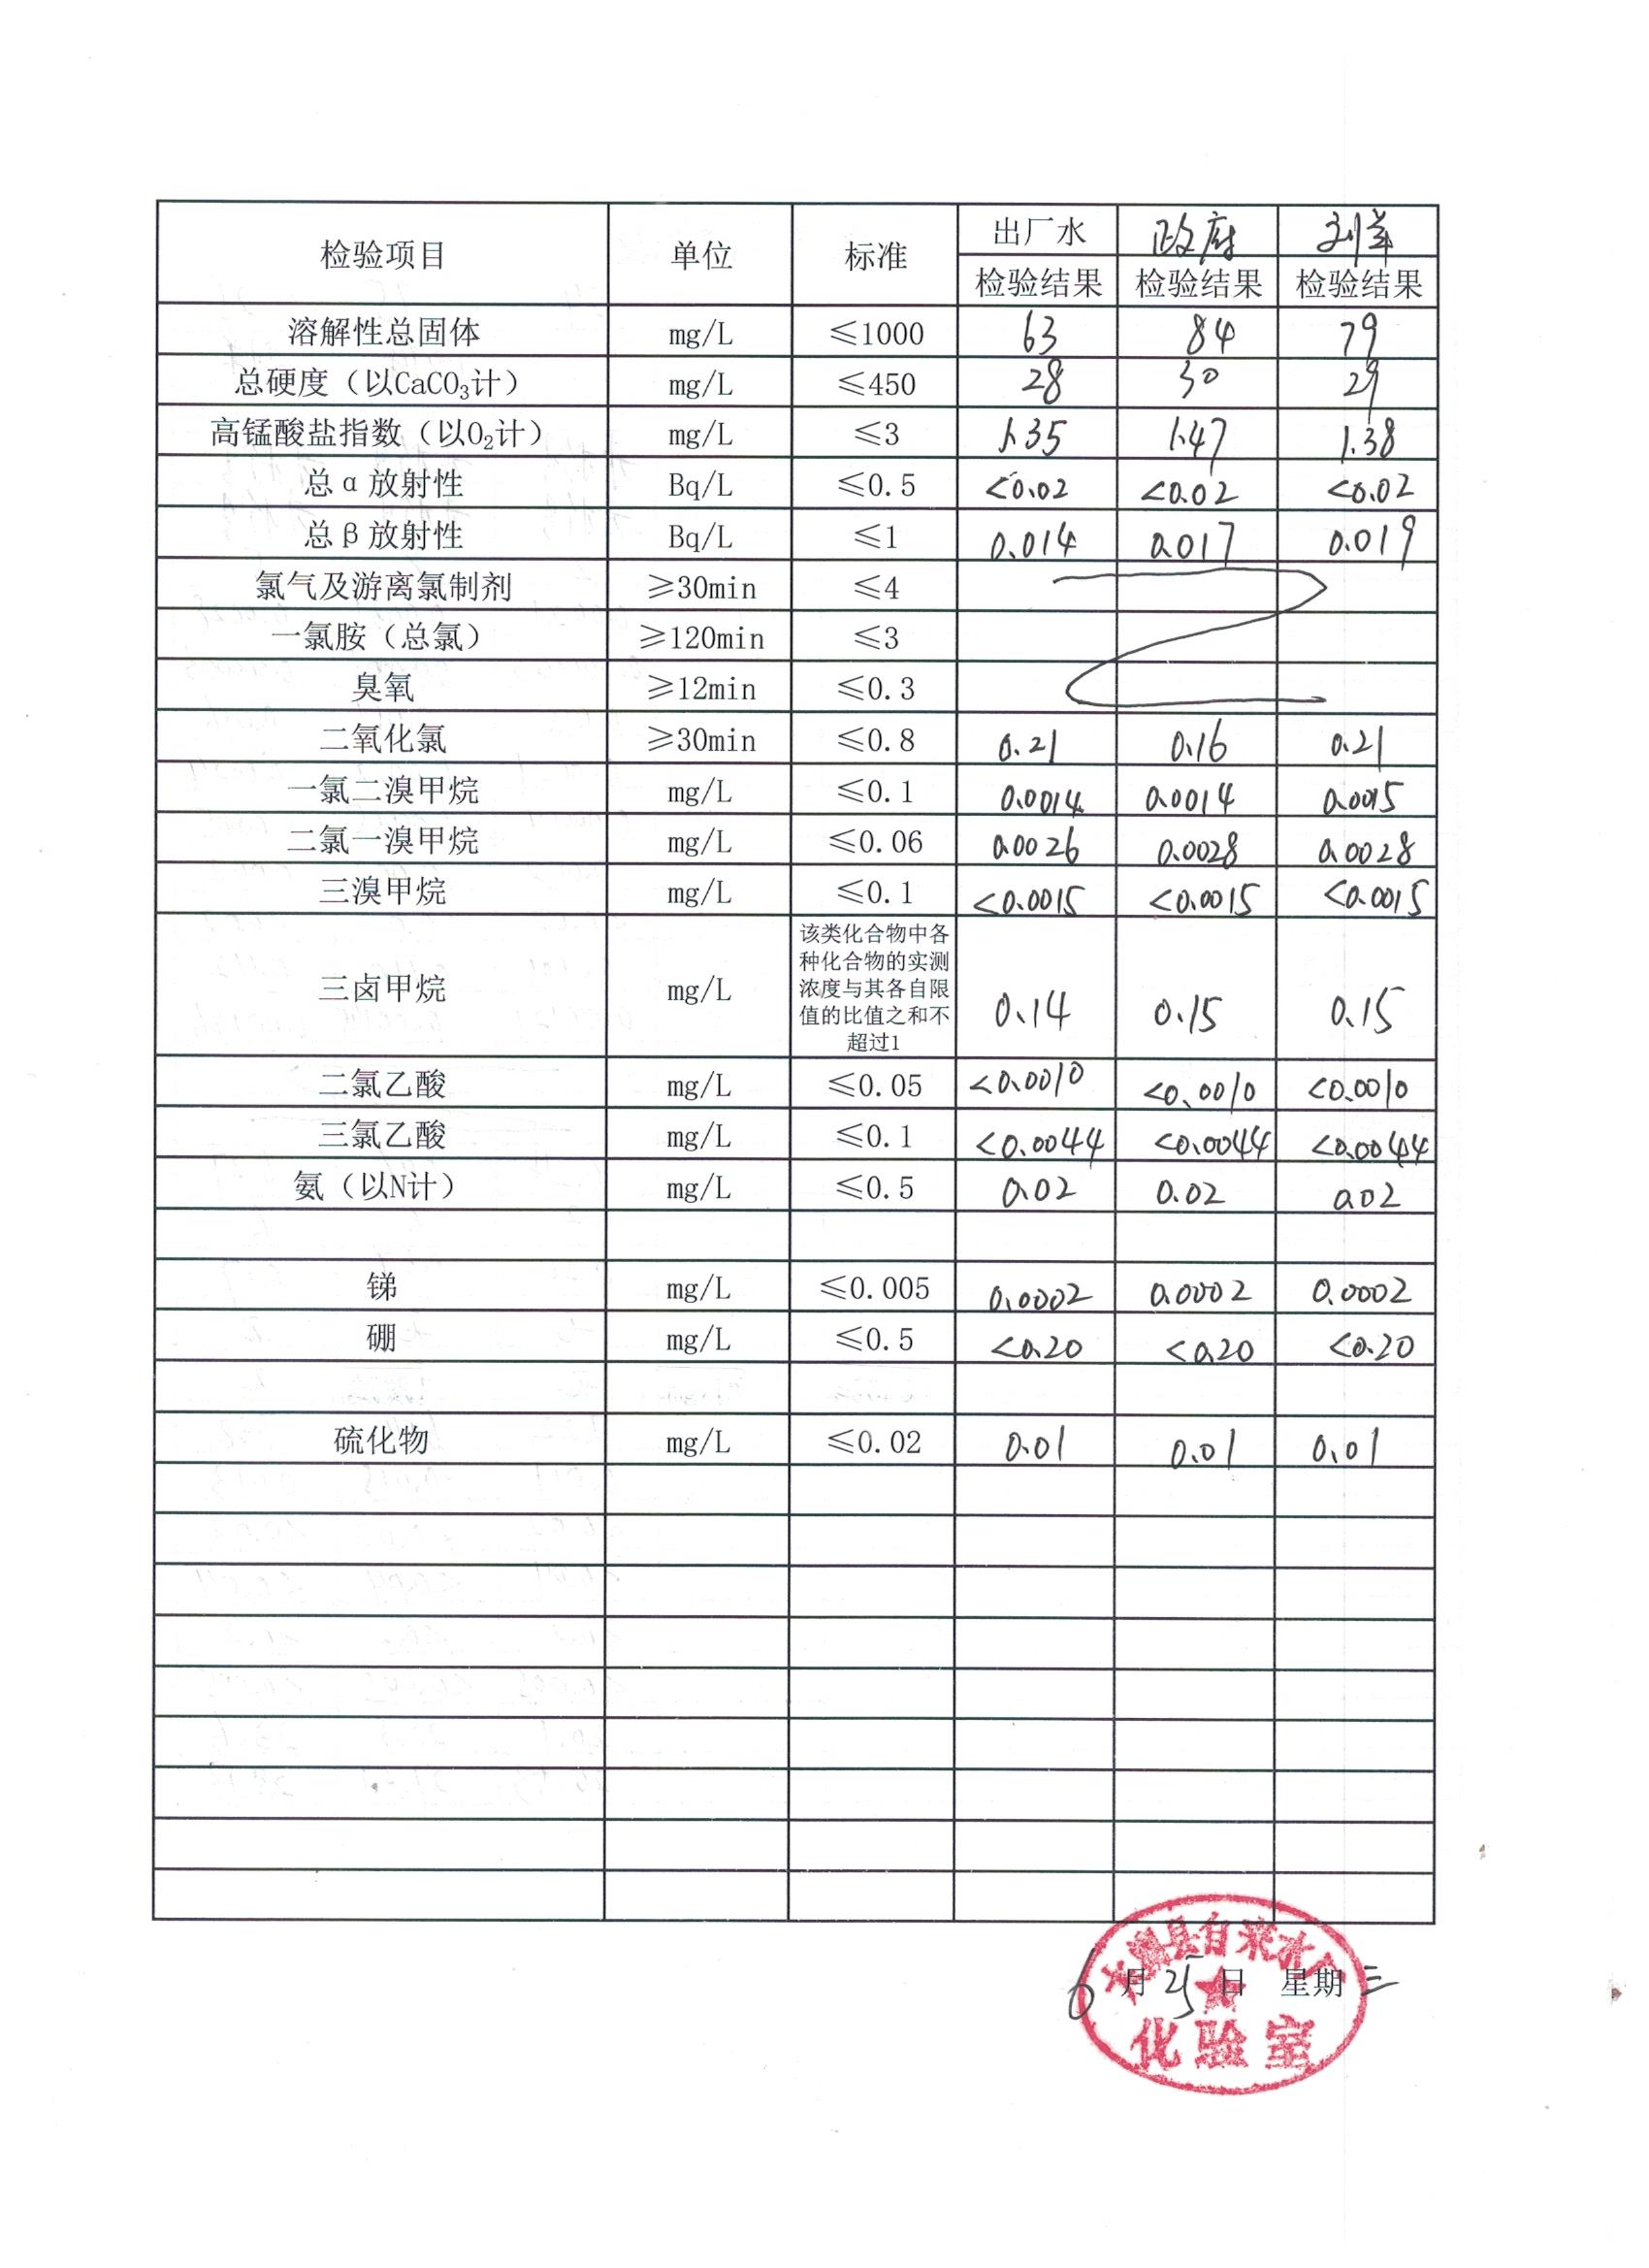 检验项目 单位 标准 出厂水 政府
检验结果 检验结果 检验结果
溶解性总固体 mg/L ≤1000 63 84 79
总硬度（以CaCO₃计） mg/L ≤450 28 30 29
高锰酸盐指数（以O₂计） mg/L ≤3 1.35 1.47 1.38
总α放射性 Bq/L ≤0.5 <0.02 <0.02 <0.02
总β放射性 Bq/L ≤1 0.014 0.017 0.019
氯气及游离氯制剂 ≥30min ≤4
一氯胺（总氯） ≥120min ≤3
臭氧 ≥12min ≤0.3
二氧化氯 ≥30min ≤0.8 0.21 0.16 0.21
一氯二溴甲烷 mg/L ≤0.1 0.0014 0.0014 0.0015
二氯一溴甲烷 mg/L ≤0.06 0.0026 0.0028 0.0028
三溴甲烷 mg/L ≤0.1 <0.0015 <0.0015 <0.0015
三卤甲烷 mg/L 该类化合物中各
种化合物的实测
浓度与其各自限
值的比值之和不
超过1 0.14 0.15 0.15
二氯乙酸 mg/L ≤0.05 <0.0010 <0.0010 <0.0010
三氯乙酸 mg/L ≤0.1 <0.0044 <0.0044 <0.0044
氨（以N计） mg/L ≤0.5 0.02 0.02 0.02
锑 mg/L ≤0.005 0.0002 0.0002 0.0002
硼 mg/L ≤0.5 <0.20 <0.20 <0.20
硫化物 mg/L ≤0.02 0.01 0.01 0.01
县自来水厂
6月25日 星期三
化验室